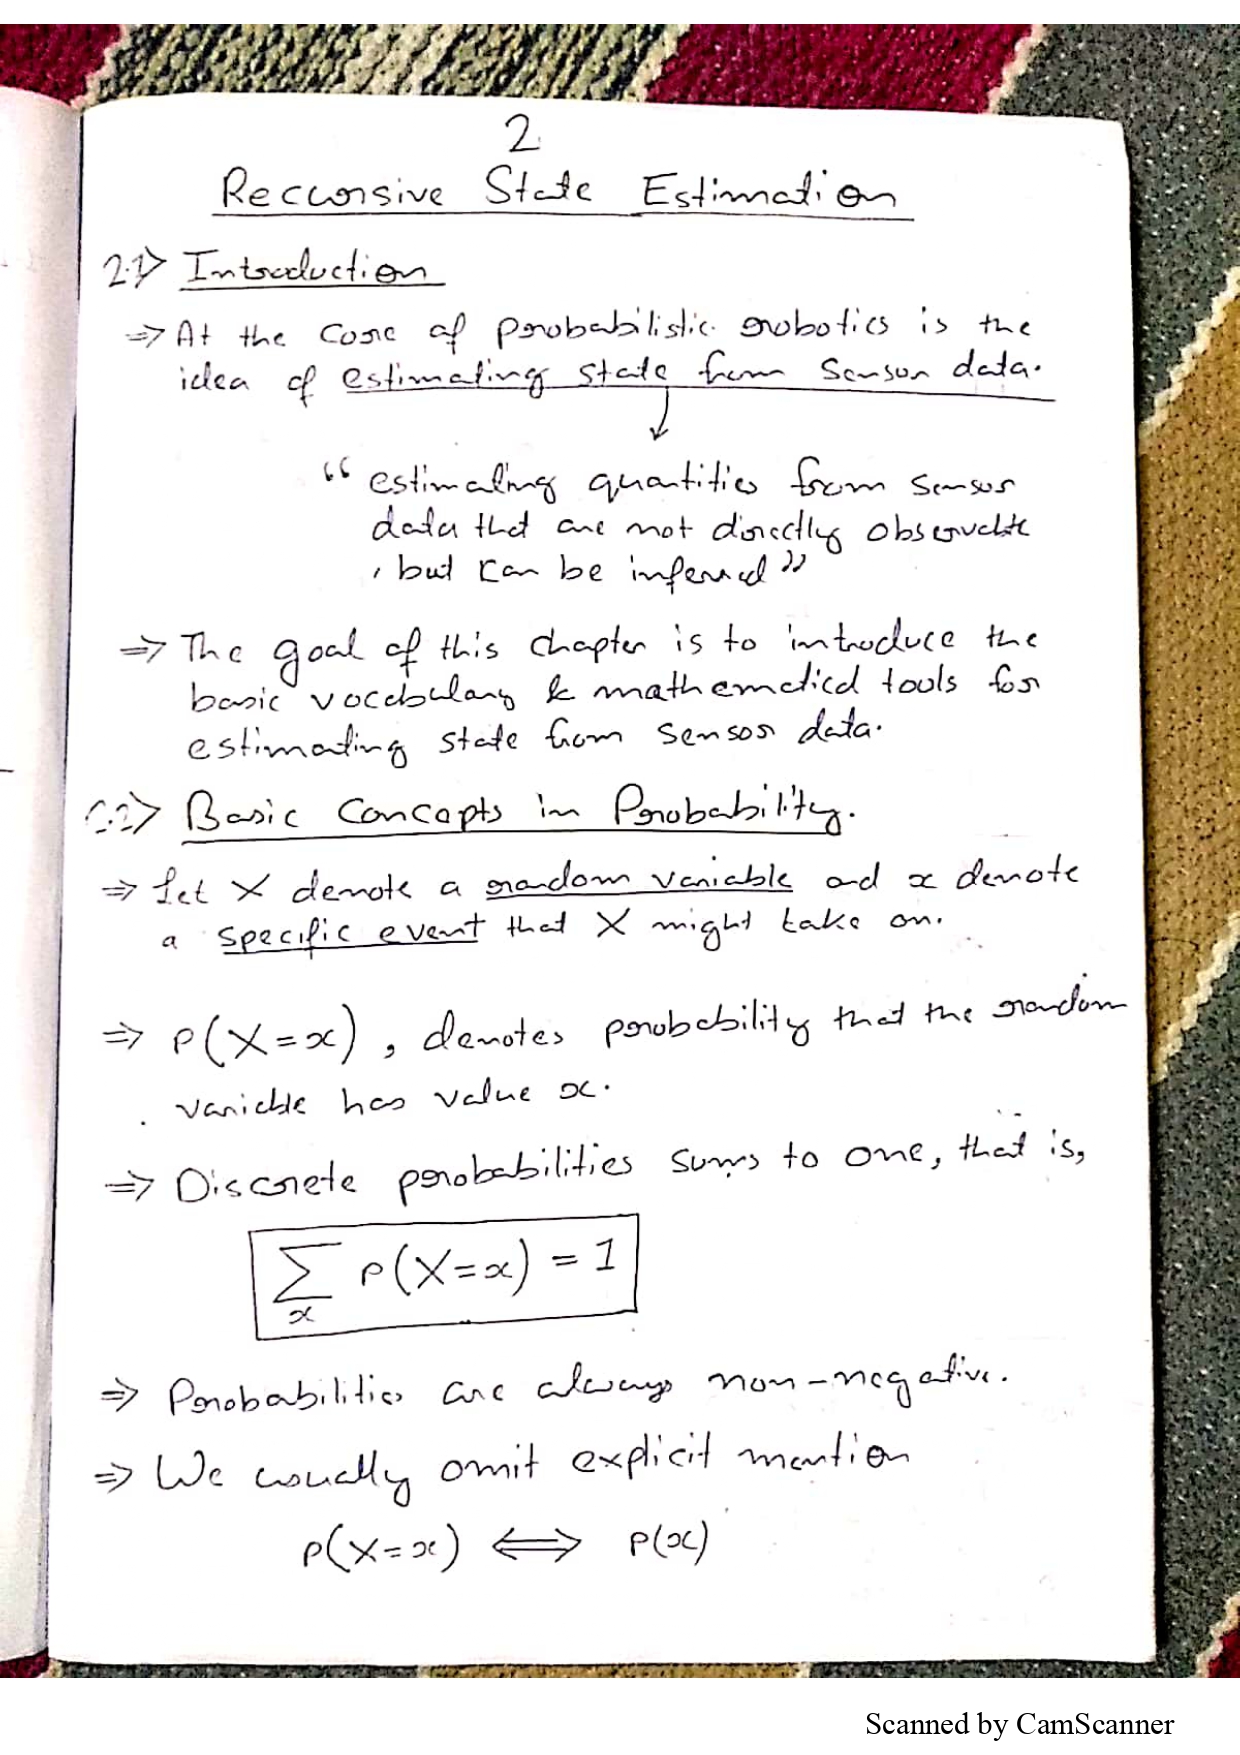 2.
Recursive State Estimation
2.1> Introduction
⇒ At the core of probabilistic robotics is the
idea of estimating state from sensor data.
“ estimating quantities from sensor
data that are not directly observable
, but can be inferred ”
⇒ The goal of this chapter is to introduce the
basic vocabulary & mathematical tools for
estimating state from sensor data.
2.2> Basic Concepts in Probability.
⇒ Let X denote a random variable and x denote
a specific event that X might take on.
⇒ p(X=x), denotes probability that the random
variable has value x.
⇒ Discrete probabilities sums to one, that is,
∑ p(X=x) = 1
x
⇒ Probabilities are always non-negative.
⇒ We usually omit explicit mention
p(X=x) ⟺ p(x)
Scanned by CamScanner